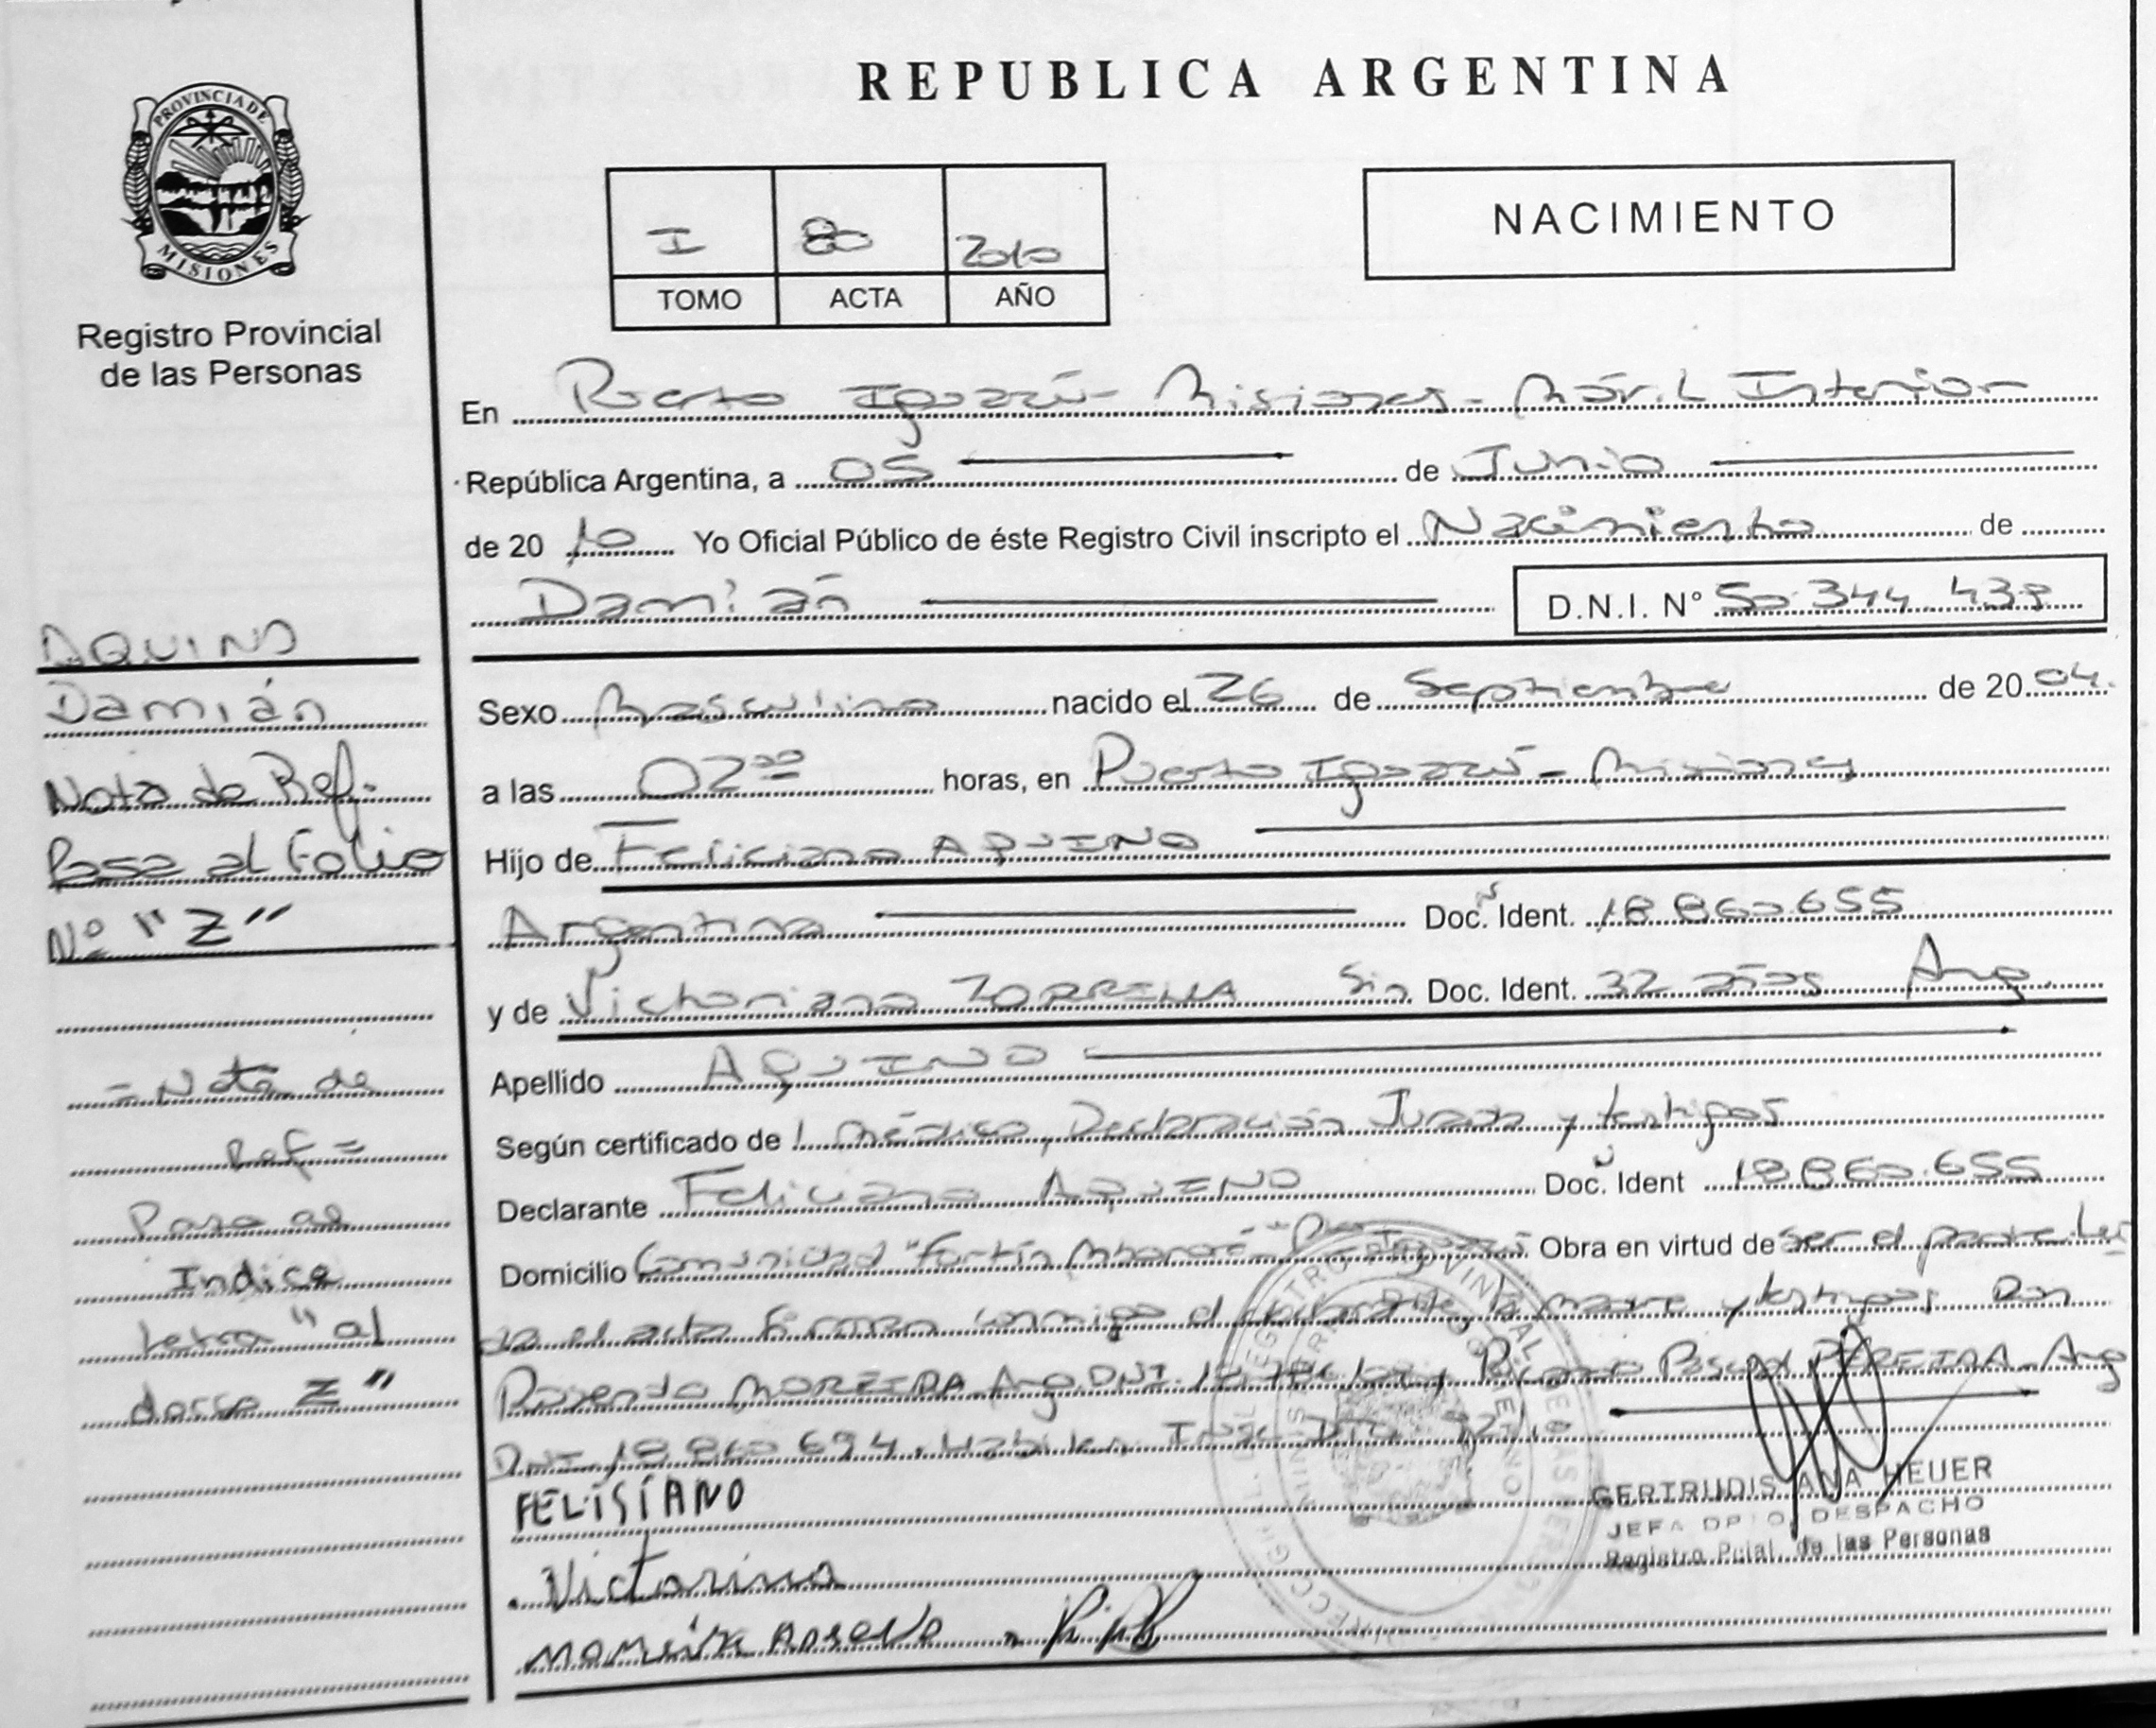 REPUBLICA ARGENTINA
PROVINCIA DE
MISIONES
Registro Provincial
de las Personas
I 80 2010
TOMO ACTA AÑO
NACIMIENTO
En Puerto Iguazú - Misiones - Móvil Interior
República Argentina, a 05 de Junio
de 2010 Yo Oficial Público de éste Registro Civil inscripto el Nacimiento de
Damián D.N.I. Nº 50.344.439
Sexo Masculino nacido el 26 de Septiembre de 2004.
a las 02⁰⁰ horas, en Puerto Iguazú - Misiones
Hijo de Feliciano AQUINO
Argentina Doc. Ident. 18.860.655
y de Victoriana ZORRILLA Sin Doc. Ident. 32 años Arg.
Apellido AQUINO
Según certificado de 1 médico, Declaración Jurada y testigos
Declarante Feliciano AQUINO Doc. Ident 18.860.655
Domicilio Comunidad "Fortín Mbororé" Obra en virtud de ser el padre Leí
da el acta firman conmigo el declarante, la madre y testigos Don
Rosendo MOREIRA Arg. DNI. y Ricardo PEREIRA - Arg
DNI. 18.860.694.
FELISIANO
Victorina
GERTRUDIS ANA HEUER
JEFA DPTO. DESPACHO
Registro Pcial. de las Personas
AQUINO
Damián
Nota de Ref.
Pasa al Folio
Nº "Z"
= Nota de
Ref =
Pasa al
Indice
letra " al
dorso Z "